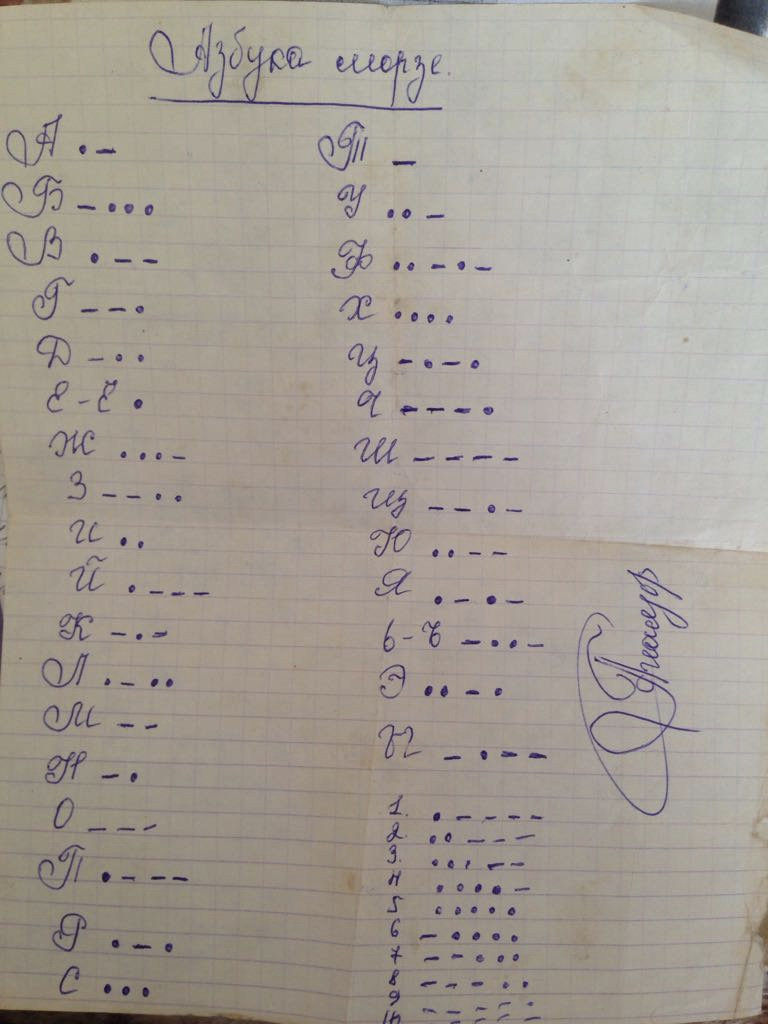 Азбука морзе.
А .-
Б -...
В .--
Г --.
Д -..
Е-Ё .
Ж ...-
З --..
И ..
Й .---
К -.-
Л .-..
М --
Н -.
О ---
П .---
Р .-.
С ...
Т -
У ..-
Ф ..-.-
Х ....
Ц -.-.
Ч ----.
Ш ----
Щ --.-
Ю ..--
Я .-.-
Ь-Ъ -..-
Э ..-.
Ы -.--
1. .----
2. ..---
3. ...--
4 ....-
5 .....
6 -....
7 --...
8 ---..
9 ----.